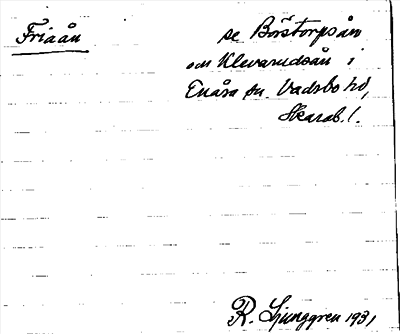 Friaån
se Borstorpsån
och Klevarudsån i
Enåsa sn Vadsbo hd,
Skarab. l.
R. Ljunggren 1931